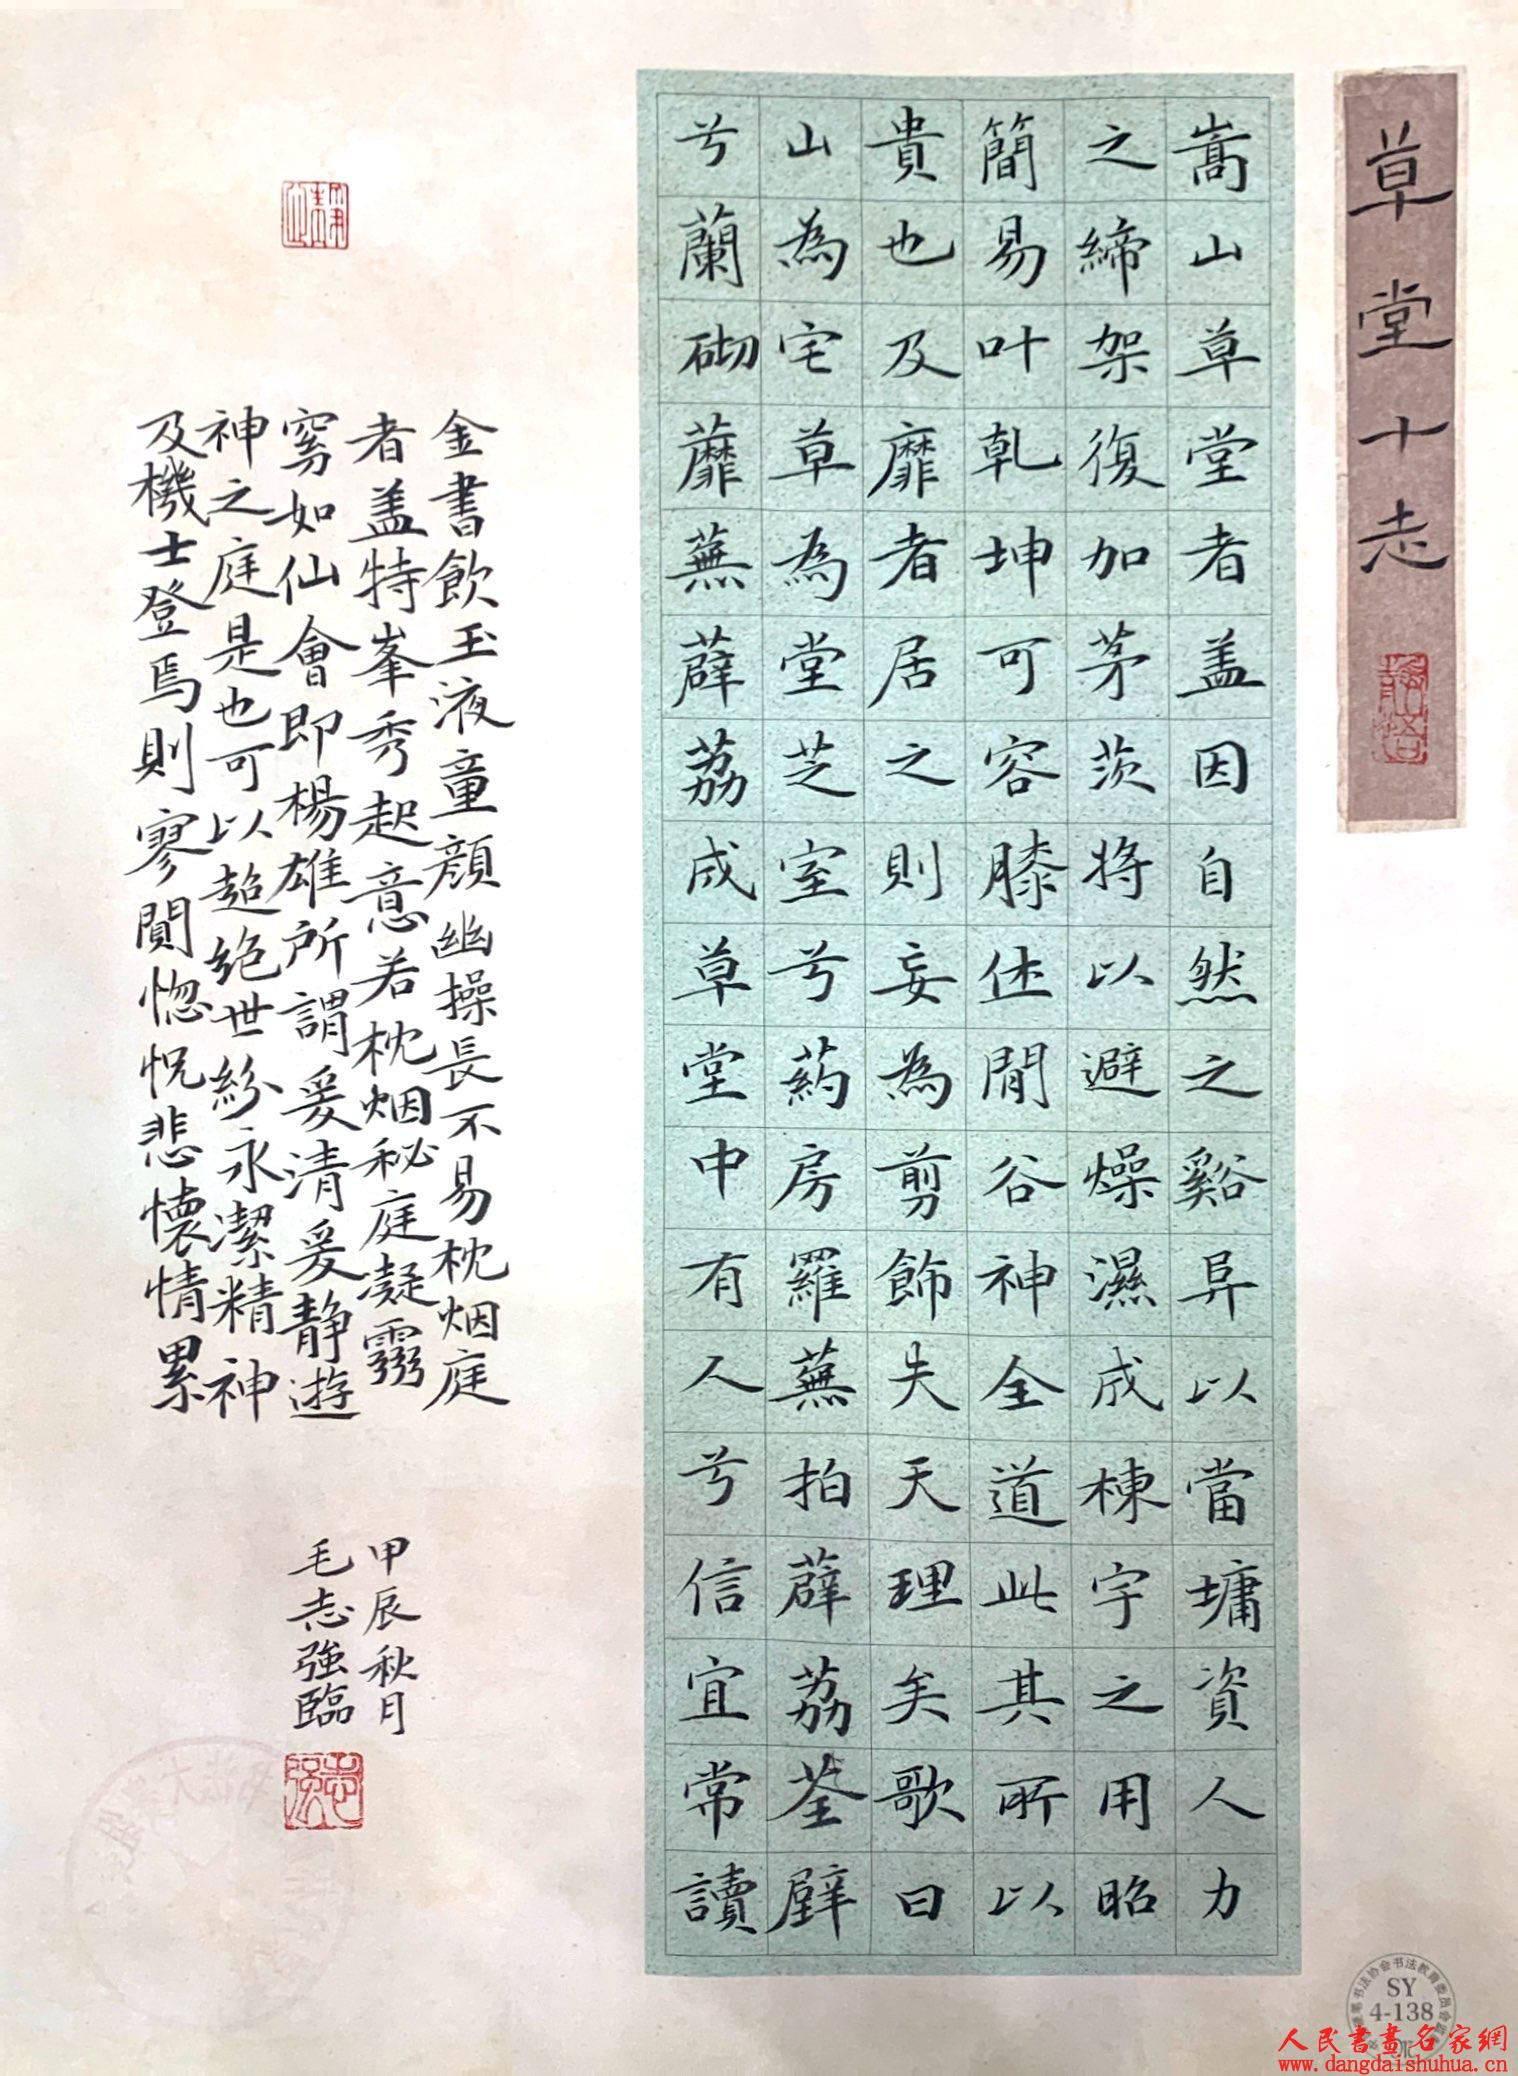 草堂十志
嵩山草堂者盖因自然之谿阜以當墉資人力
之締架復加茅茨将以避燥濕成棟宇之用昭
簡易叶乹坤可容膝休閒谷神全道此其所以
貴也及靡者居之則妄為剪飾失天理矣歌曰
山為宅草為堂芝室兮药房羅蘪蕪拍薜荔荃壁
兮蘭砌蘼蕪薜荔成草堂中有人兮信宜常讀
金書飲玉液童顔幽操長不易枕烟庭
者盖特峯秀起意若枕烟秘庭凝靈
窅如仙會即楊雄所謂爰清爰静遊
神之庭是也可以超绝世紛永潔精神
及機士登焉則寥闃惚怳悲懷情累
甲辰秋月
毛志強臨
SY
4-138
人民書畫名家網
www.dangdaishuhua.cn